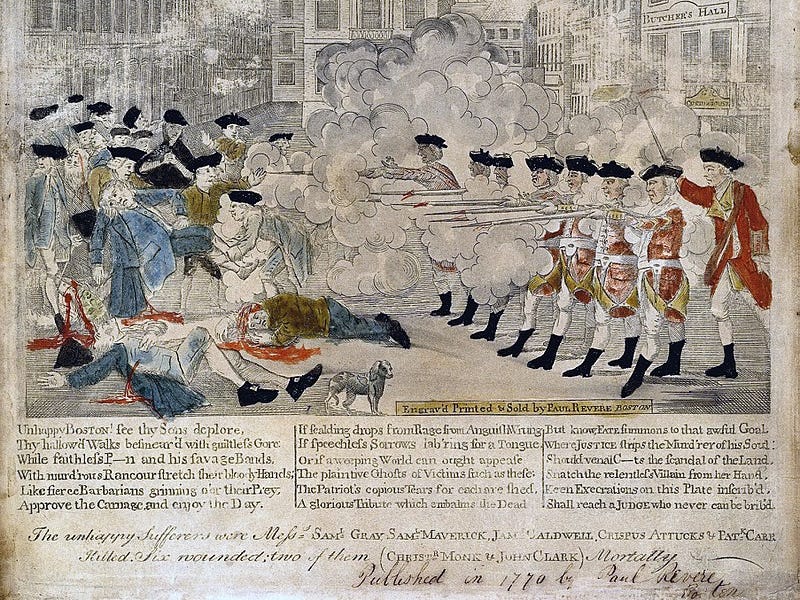 BUTCHER'S HALL
Engrav'd Printed & Sold by PAUL REVERE BOSTON
Unhappy BOSTON! ſee thy Sons deplore,
Thy hallow'd Walks beſmear'd with guiltleſs Gore:
While faithleſs P—n and his ſavage Bands,
With murd'rous Rancour ſtretch their bloody Hands;
Like fierce Barbarians grinning o'er their Prey,
Approve the Carnage, and enjoy the Day.
If ſcalding drops from Rage from Anguiſh Wrung
If ſpeechleſs Sorrows lab'ring for a Tongue,
Or if a weeping World can ought appeaſe
The plaintive Ghoſts of Victims ſuch as theſe:
The Patriot's copious Tears for each are ſhed,
A glorious Tribute which embalms the Dead
But know, FATE ſummons to that awful Goal,
Where JUSTICE ſtrips the Murd'rer of his Soul:
Should venal C—ts the ſcandal of the Land,
Snatch the relentleſs Villain from her Hand,
Keen Execrations on this Plate inſcrib'd,
Shall reach a JUDGE who never can be brib'd.
The unhappy Sufferers were Meſs.ˢ SAM.ᴸ GRAY, SAM.ᴸ MAVERICK, JAM.ˢ CALDWELL, CRISPUS ATTUCKS & PAT.ᴷ CARR
Killed. Six wounded; two of them (CHRIST.ᴿ MONK & JOHN CLARK) Mortally
Published in 1770 by Paul Revere
Boston